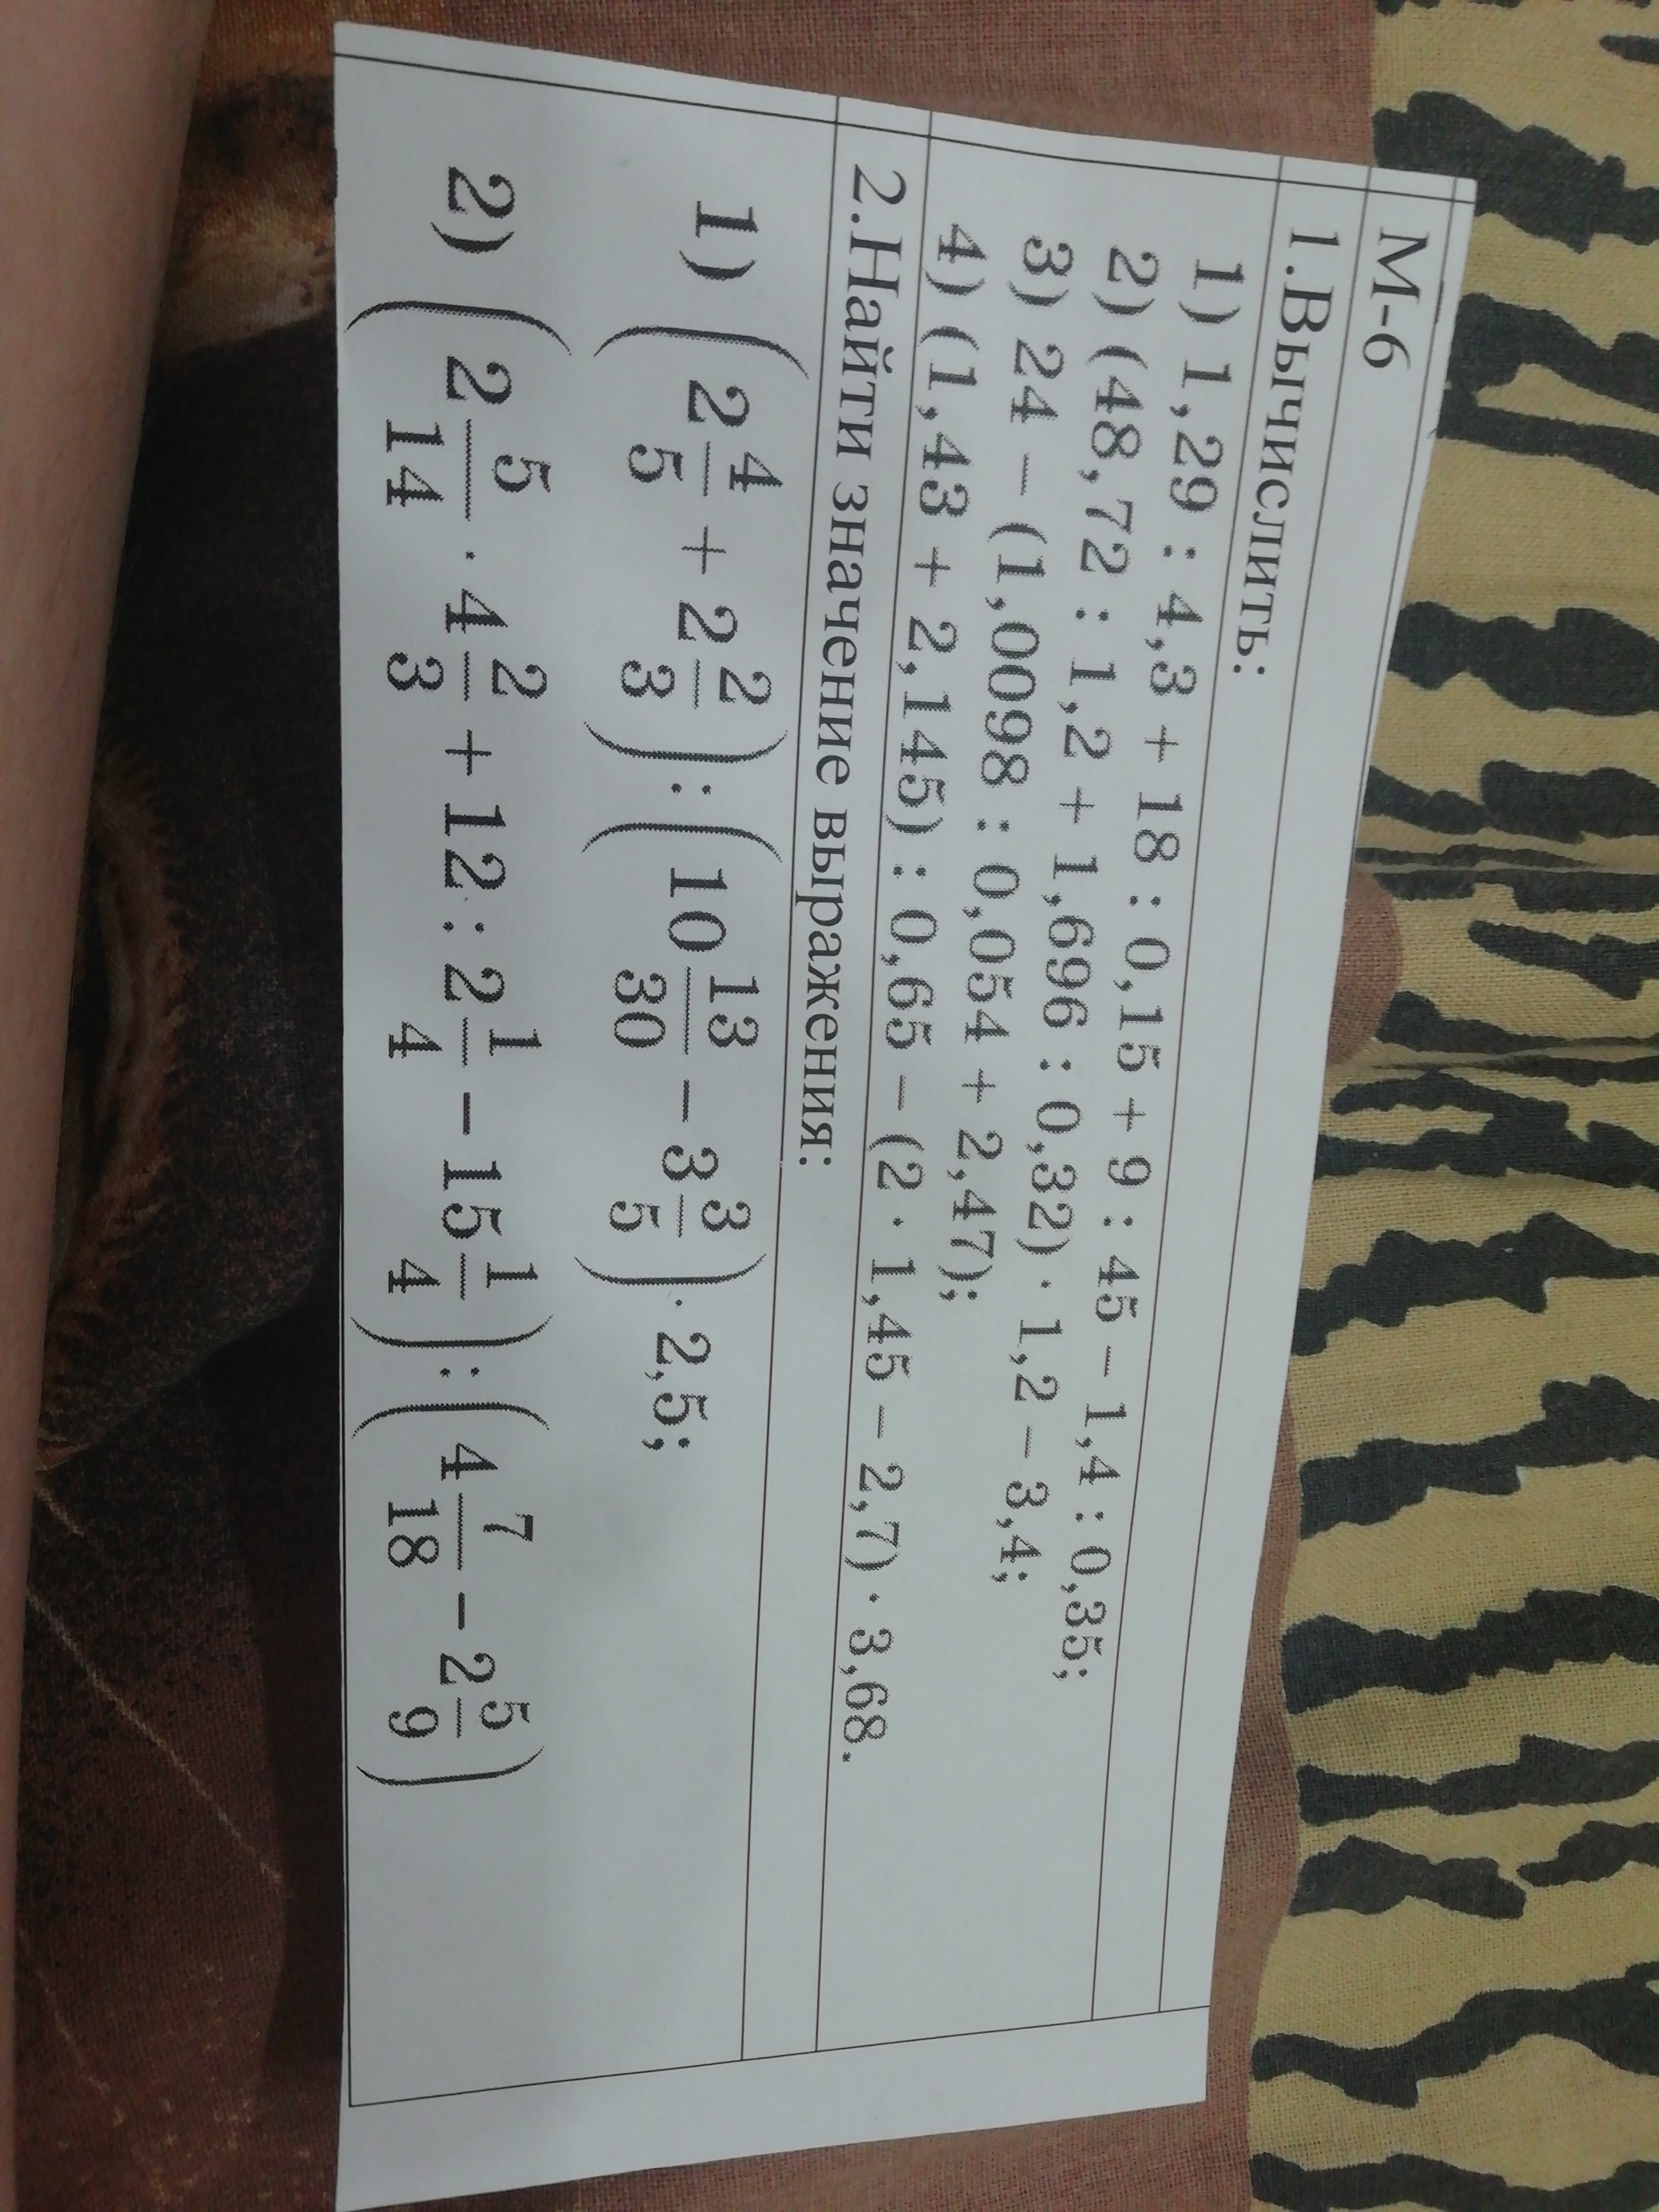 М-6
1.Вычислить:
1) 1,29 : 4,3 + 18 : 0,15 + 9 : 45 − 1,4 : 0,35;
2) (48,72 : 1,2 + 1,696 : 0,32) · 1,2 − 3,4;
3) 24 − (1,0098 : 0,054 + 2,47);
4) (1,43 + 2,145) : 0,65 − (2 · 1,45 − 2,7) · 3,68.
2.Найти значение выражения:
1) (2 4/5 + 2 2/3) : (10 13/30 − 3 3/5) · 2,5;
2) (2 5/14 · 4 2/3 + 12 : 2 1/4 − 15 1/4) : (4 7/18 − 2 5/9)